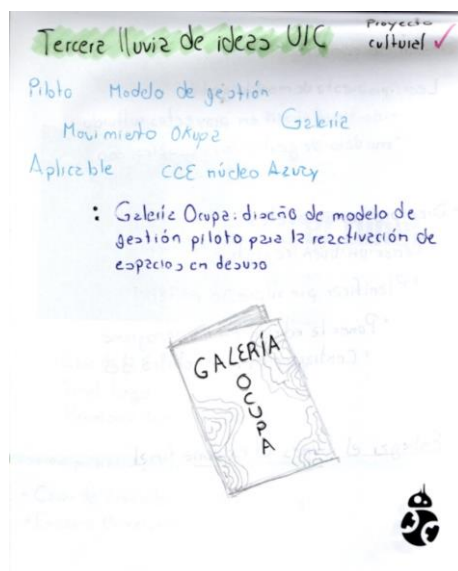 Tercera lluvia de ideas UIC
Proyecto
cultural ✓
Piloto Modelo de gestión
Movimiento Okupa Galería
Aplicable CCE núcleo Azuay
: Galería Ocupa: diseño de modelo de
gestión piloto para la reactivación de
espacios en desuso
GALERÍA
OCUPA